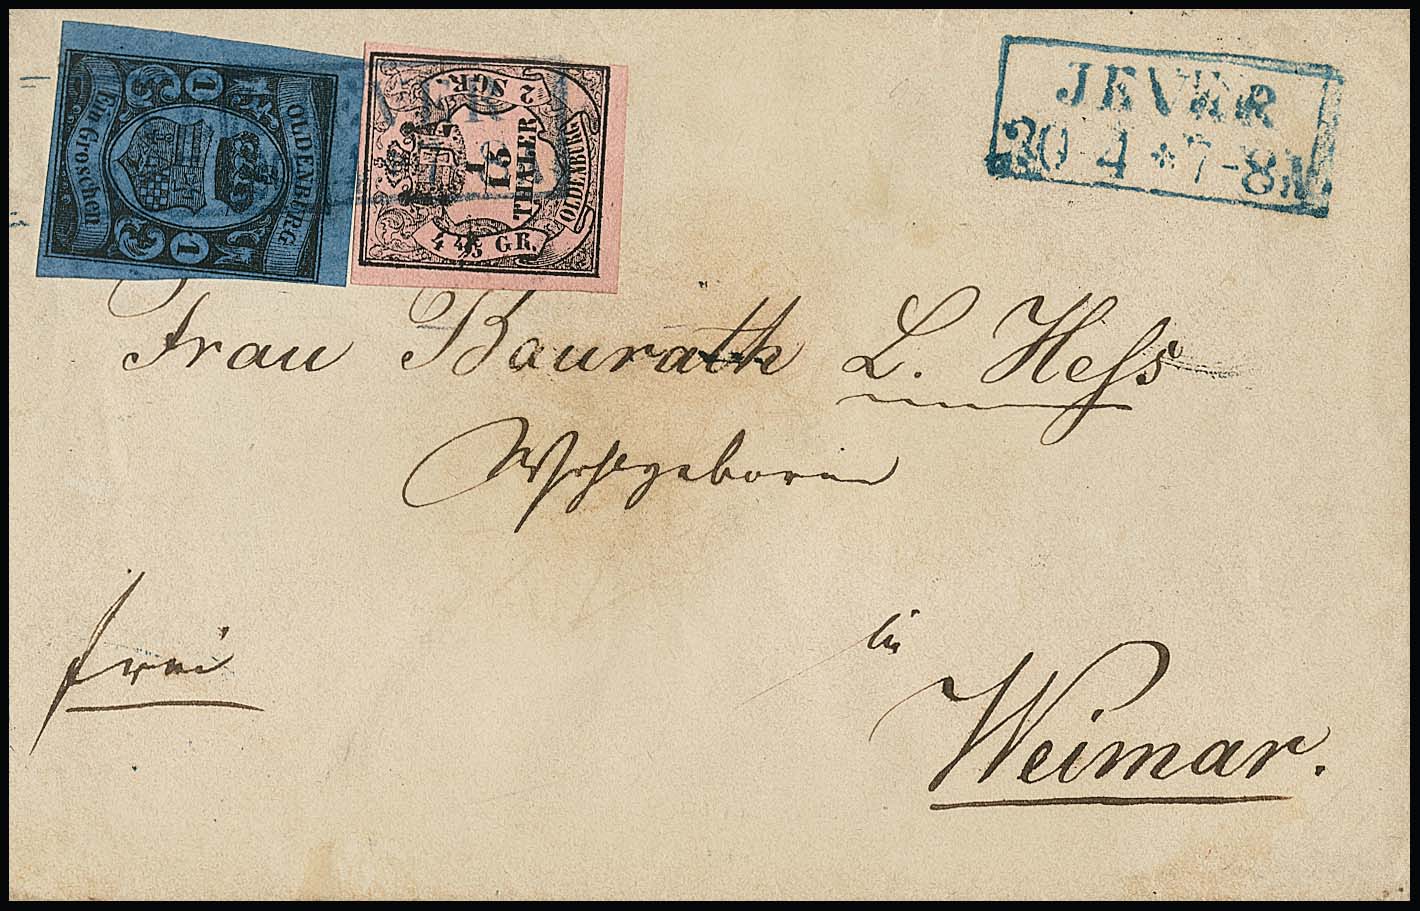 OLDENBURG
1 1
Ein Groschen
2 SGR.
1/15
THALER
OLDENBURG
4 4/5 GR.
JEVER
JEVER
30 4 * 7-8 N.
Frau Baurath L. Heſs
Wohlgeboren
frei
in
Weimar.